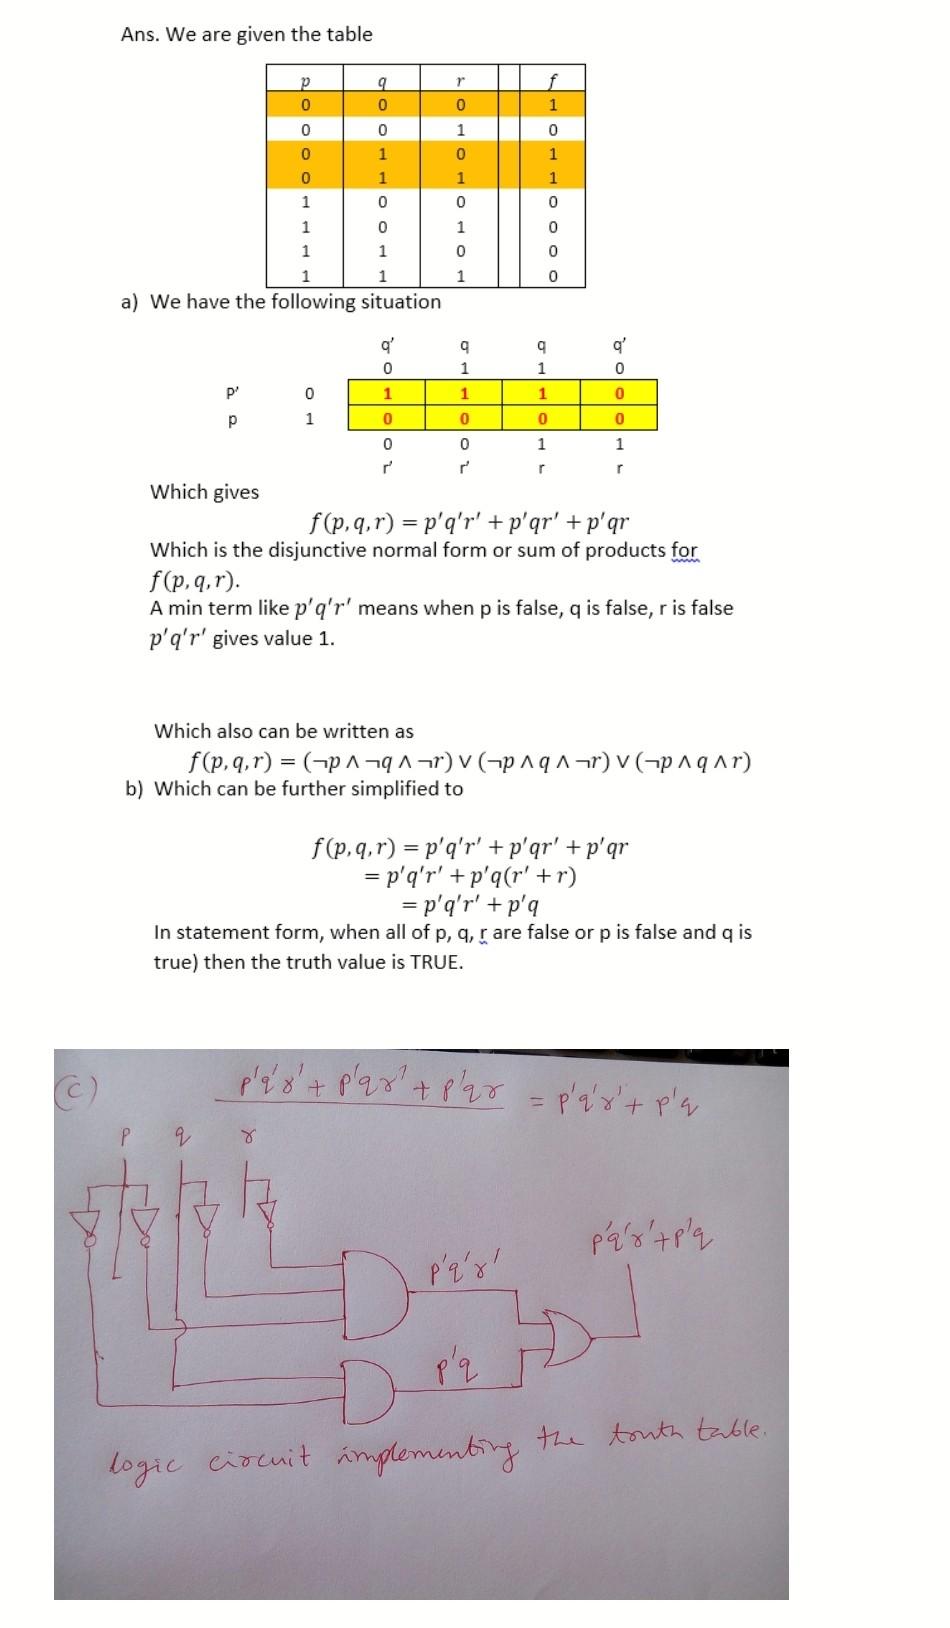 Ans. We are given the table
p q r f
0 0 0 1
0 0 1 0
0 1 0 1
0 1 1 1
1 0 0 0
1 0 1 0
1 1 0 0
1 1 1 0
a) We have the following situation
q' q q q'
0 1 1 0
P' 0 1 1 1 0
p 1 0 0 0 0
0 0 1 1
r' r' r r
Which gives
f(p,q,r) = p'q'r' + p'qr' + p'qr
Which is the disjunctive normal form or sum of products for
f(p,q,r).
A min term like p'q'r' means when p is false, q is false, r is false
p'q'r' gives value 1.
Which also can be written as
f(p,q,r) = (¬p ∧ ¬q ∧ ¬r) ∨ (¬p ∧ q ∧ ¬r) ∨ (¬p ∧ q ∧ r)
b) Which can be further simplified to
f(p,q,r) = p'q'r' + p'qr' + p'qr
= p'q'r' + p'q(r' + r)
= p'q'r' + p'q
In statement form, when all of p, q, r are false or p is false and q is
true) then the truth value is TRUE.
(C) p'q'r' + p'qr' + p'qr = p'q'r' + p'q
p q r
p'q'r'+p'q
p'q'r'
p'q
logic circuit implementing the truth table.